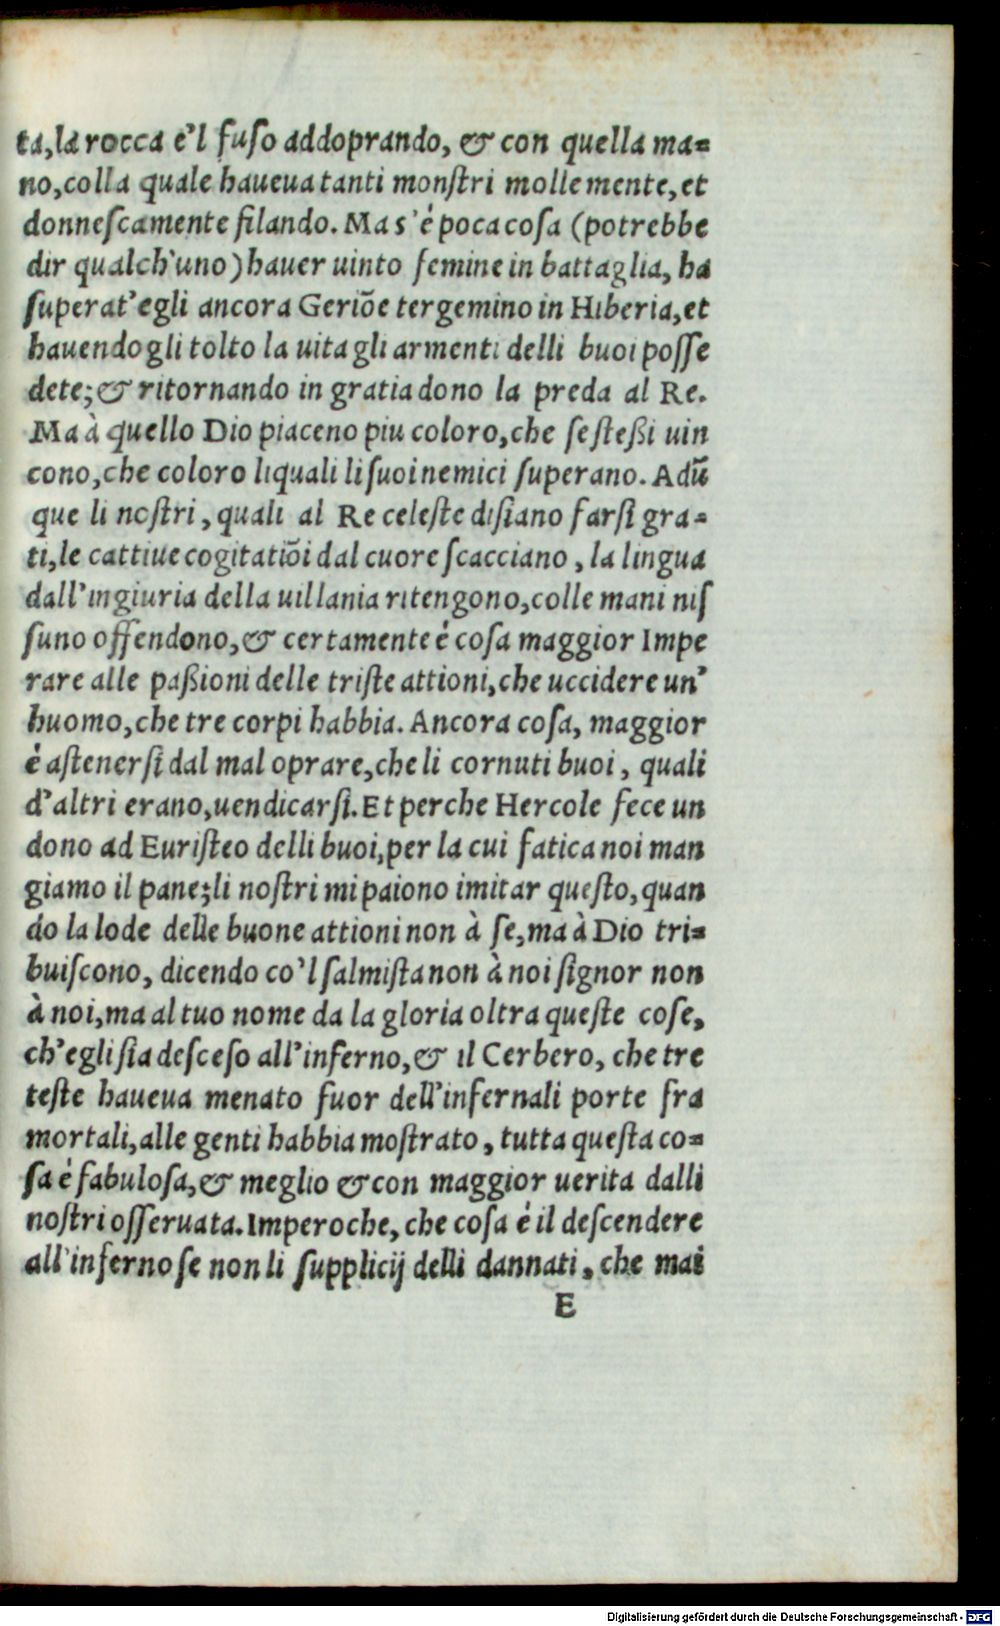 ta, la rocca e'l fuſo addoprando, & con quella ma=
no, colla quale haueua tanti monſtri mollemente, et
donneſcamente filando. Ma s'é poca coſa (potrebbe
dir qualch'uno) hauer uinto femine in battaglia, ha
ſuperat'egli ancora Geriōe tergemino in Hiberia, et
hauendogli tolto la uita gli armenti delli buoi poſſe
dete; & ritornando in gratia dono la preda al Re.
Ma à quello Dio piaceno piu coloro, che ſe ſteßi uin
cono, che coloro liquali li ſuoi nemici ſuperano. Adū
que li noſtri, quali al Re celeſte diſiano farſi gra=
ti, le cattiue cogitatiōi dal cuore ſcacciano, la lingua
dall'ingiuria della uillania ritengono, colle mani niſ
ſuno offendono, & certamente é coſa maggior Impe
rare alle paßioni delle triſte attioni, che uccidere un'
huomo, che tre corpi habbia. Ancora coſa, maggior
é aſtenerſi dal mal oprare, che li cornuti buoi, quali
d'altri erano, uendicarſi. Et perche Hercole fece un
dono ad Euriſteo delli buoi, per la cui fatica noi man
giamo il pane; li noſtri mi paiono imitar queſto, quan
do la lode delle buone attioni non à ſe, ma à Dio tri=
buiſcono, dicendo co'l ſalmiſta non à noi ſignor non
à noi, ma al tuo nome da la gloria oltra queſte coſe,
ch'egli ſia deſceſo all'inferno, & il Cerbero, che tre
teſte haueua menato fuor dell'infernali porte fra
mortali, alle genti habbia moſtrato, tutta queſta co=
ſa é fabuloſa, & meglio & con maggior uerita dalli
noſtri oſſeruata. Imperoche, che coſa é il deſcendere
all'inferno ſe non li ſupplicij delli dannati, che mai
E
Digitalisierung gefördert durch die Deutsche Forschungsgemeinschaft - DFG